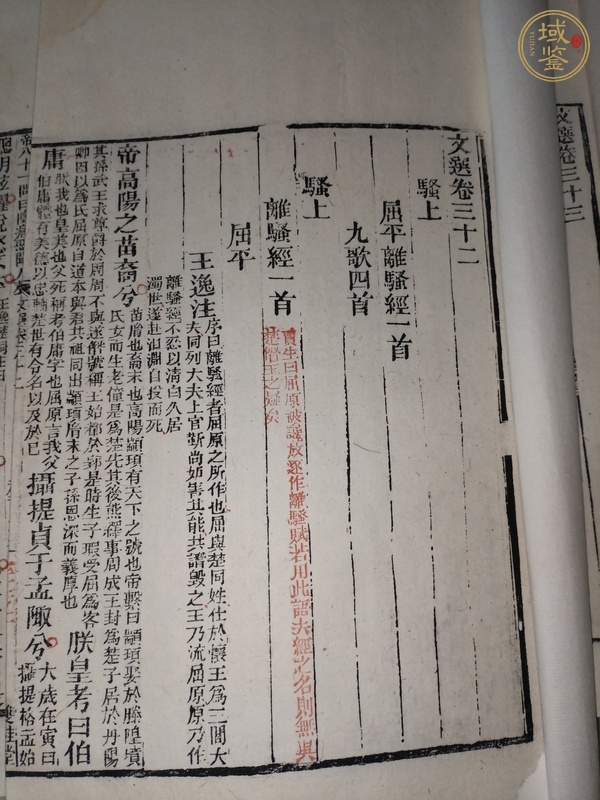 文選卷三十二
騷上
屈平離騷經一首
九歌四首
騷上
離騷經一首
賈生曰屈原被讒放逐作離騷賦若用此語夫經之名則無異
屈平
王逸注
序曰離騷經者屈原之所作也屈與楚同姓仕於懷王為三閭大
夫同列大夫上官靳尚妬害其能共譖毀之王乃流屈原原乃作
離騷經不忍以清白久居
濁世遂赴汨淵自投而死
帝高陽之苗裔兮
苗胤也裔末也高陽顓頊有天下之號也帝繫曰顓頊娶於滕隍墳
氏女而生老僮是為楚先其後熊繹事周成王封為楚子居於丹陽
其孫武王求尊爵於周周不與遂僭號稱王始都於郢是時生子瑕受屈為客
卿因以為氏屈原自道本與君共祖同出顓頊胤末之子孫恩深而義厚也
朕皇考曰伯
庸
朕我也皇美也父死稱考伯庸字也屈原言我父
伯庸體有美德以忠輔楚世有令名以及於己
攝提貞于孟陬兮
太歲在寅曰
攝提格孟始
文選卷三十三
域鉴
YUJIAN